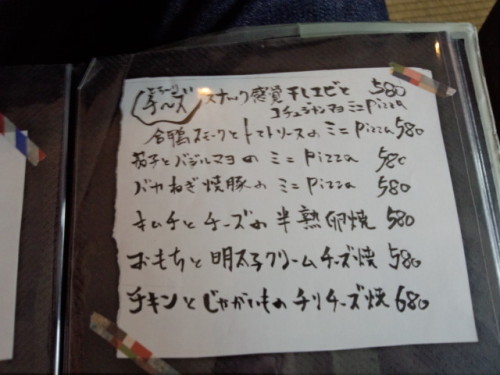 チーズ
スナック感覚 干しエビと 580
コチュジャンマヨ ミニ pizza
合鴨スモークとトマトソースのミニ pizza 580
茄子とバジルマヨのミニ pizza 580
ねぎ焼豚のミニ pizza 580
キムチとチーズの半熟卵焼 580
おもちと明太子クリームチーズ焼 580
チキンとじゃがいものチリチーズ焼 680